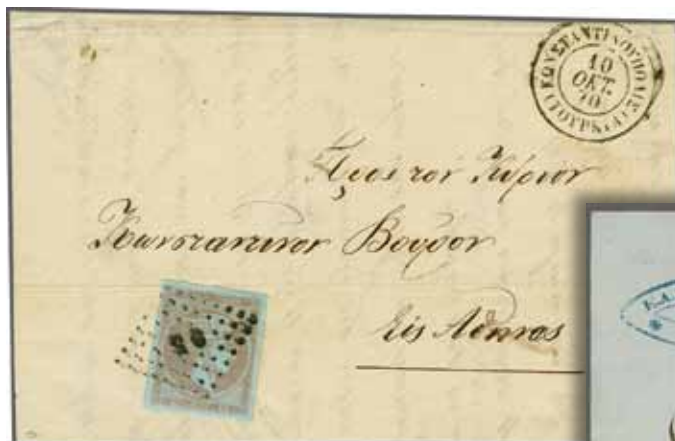 ΚΩΝΣΤΑΝΤΙΝΟΥΠΟΛΙΣ
10
ΟΚΤ.
70
(ΤΟΥΡΚΙΑ)
Προς τον Κύριον
Κωνσταντινον Βουρον
Εις Αθηνας